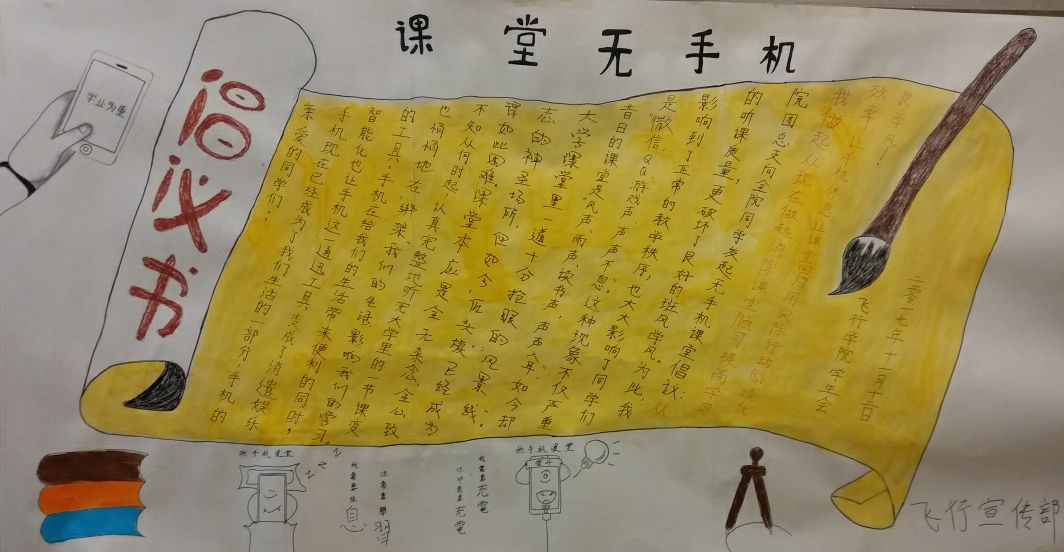 课堂无手机
倡议书
学业为重
亲爱的同学们:
手机现在已经成为了我们生活的一部分!手机的
智能化也让手机这一通迅工具,变成了消遣娱乐
的工具,手机在给我们的生活带来便利的同时,
也悄悄地在"绑架"我们的生活,影响我们的学习.
不知从何时起,认真完整地听完大学里的一节课变
得如此困难.课堂本应是全无杂念,全心致
志的神圣场所,但如今,"低头族"已经成为
大学课堂里一道十分抢眼的"风景线".
昔日的课堂是"风声,雨声,读书声,声声入耳",如今却
是"微信,QQ,游戏声,声声不息".这种现象不仅严重
影响到了正常的教学秩序,也大大影响了同学们
的听课质量,更破坏了良好的班风学风。为此,我
院团总支向全院同学发起无手机课堂倡议:从
我做起,从现在做起,消除课堂"陋习",提高学习
效率,让手机休息,让课堂回归,用实际行动创建优
良学风!
飞行学院学生会
二零一七年十一月十二日
无手机课堂
zzz
我需要休息
你需要學習
我需要充電
你也需要充電
无手机课堂
飞行宣传部